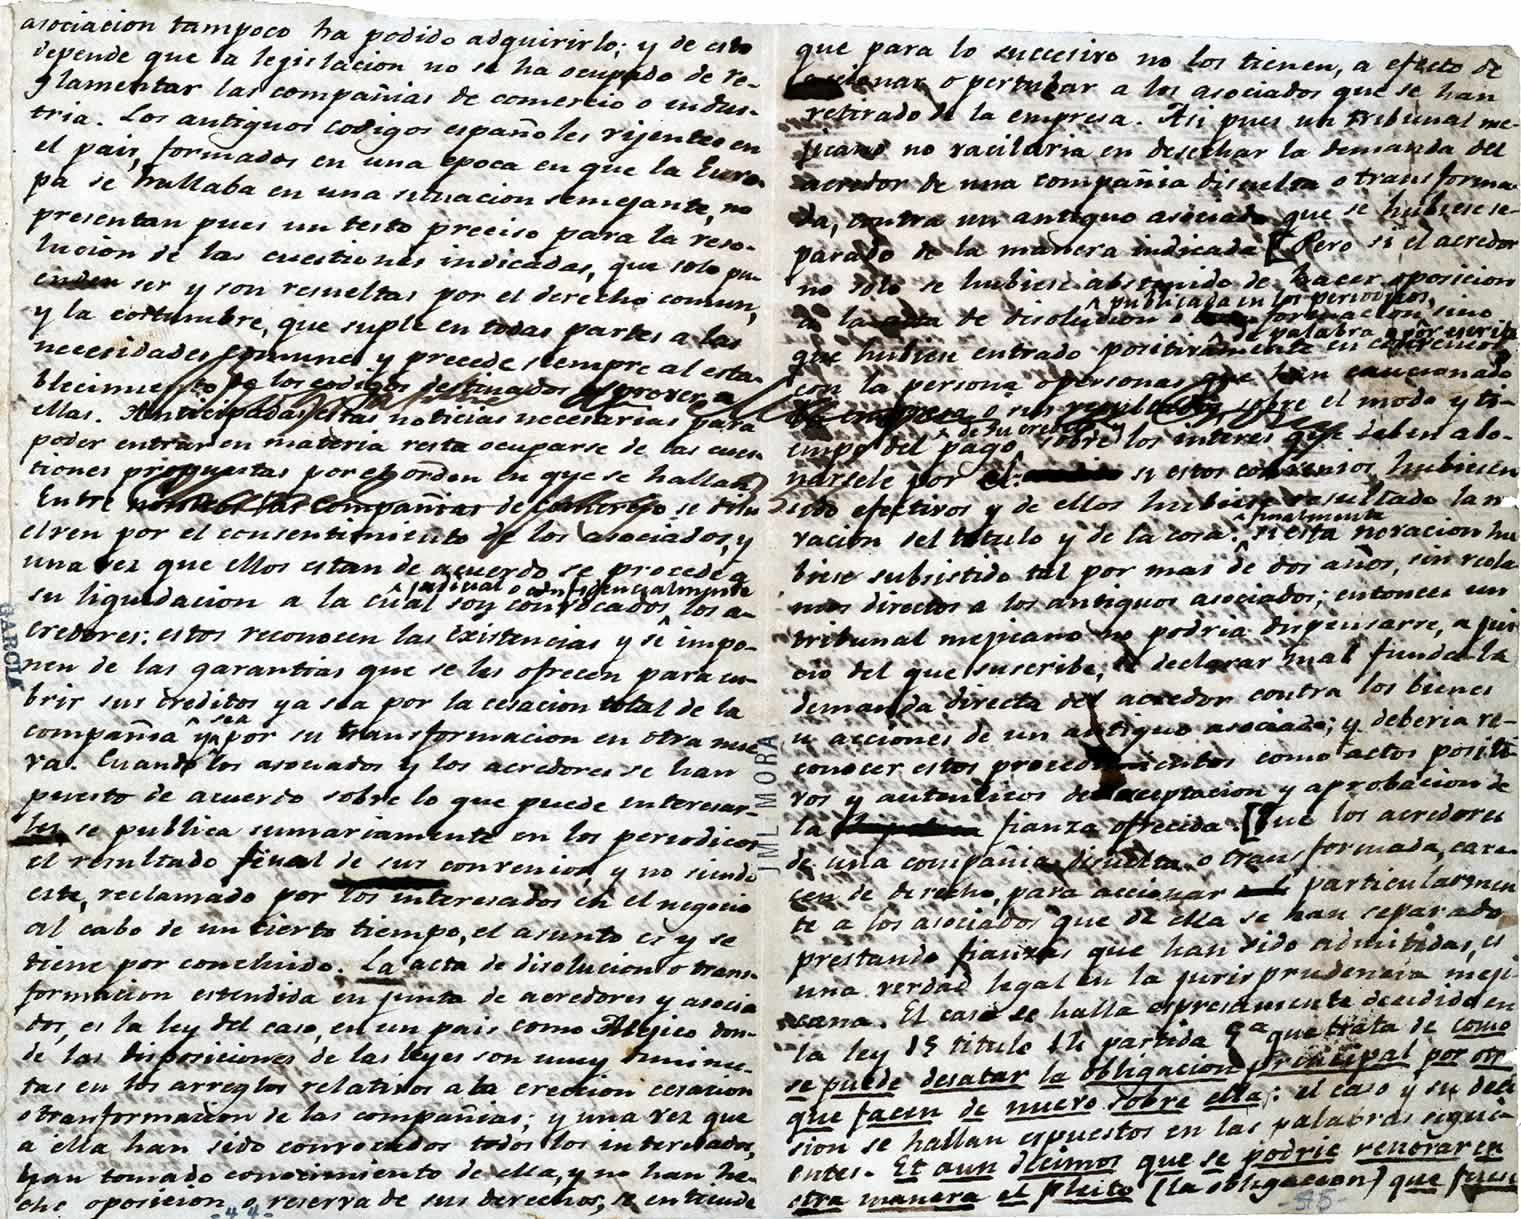 asociacion tampoco ha podido adquirirlo; y de esto
depende que la legislacion no se ha ocupado de re-
glamentar las compañias de comercio o indus-
tria. Los antiguos codigos españoles vijentes en
el pais, formados en una epoca en que la Euro-
pa se hallaba en una situacion semejante, no
presentan pues un testo preciso para la reso-
lucion de las cuestiones indicadas, que solo pu-
eden ser y son resueltas por el derecho comun,
y la costumbre, que suple en todas partes a las
necesidades comunes y precede siempre al esta-
blecimiento de los codigos destinados a proveer a
ellas. Anticipadas estas noticias necesarias para
poder entrar en materia resta ocuparse de las cues
tiones propuestas por el orden en que se hallan
Entre las compañias de comercio se disu
elven por el consentimiento de los asociados, y
una vez que ellos estan de acuerdo se procede a
su liquidacion a la cual judicial o confidencialmente son convocados los a-
credores: estos reconocen las existencias y se impo-
nen de las garantias que se les ofrecen para cu-
brir sus creditos ya sea por la cesacion total de la
compañia ya sea por su transformacion en otra nue
va. Cuando los asociados y los acredores se han
puesto de acuerdo sobre lo que puede interesar-
les se publica sumariamente en los periodicos
el resultado final de sus convenios, y no siendo
este, reclamado por los interesados en el negocio
al cabo de un cierto tiempo, el asunto es y se
tiene por concluido. La acta de disolucion o trans-
formacion estendida en junta de acredores y asocia
dos, es la ley del caso, en un pais como Mejico don-
de las disposiciones de las leyes son muy diminu-
tas en los arreglos relativos a la ereccion cesacion
o transformacion de las compañias; y una vez que
a ella han sido convocados todos los interesados,
han tomado conocimiento de ella, y no han he-
cho oposicion o reserva de sus derechos, se entiende
-44-
GARCIA
J M L MORA
que para lo succesivo no los tienen, a efecto de
accionar o perturbar a los asociados que se han
retirado de la empresa. Asi pues un tribunal me-
jicano no vacilaria en desechar la demanda del
acredor de una compañia disuelta o transforma-
da, contra un antiguo asociado que se hubiese se-
parado de la manera indicada. [Pero si el acredor
no solo se hubiese abstenido de hacer oposicion
a la acta de disolucion o transformacion publicada en los periodicos, sino
que hubiese entrado positivamente de palabra o por escrito en convenios
con la persona o personas que han caucionado
la empresa o sus resultados, sobre el modo y ti-
empo del pago de su credito, y sobre los interes que deben abo-
narsele por el: si estos convenios hubiesen
sido efectivos y de ellos hubiese resultado la n
vacion del titulo y de la cosa: si finalmente esta novacion hu
biese subsistido tal por mas de dos años, sin recla
mos directos a los antiguos asociados; entonces un
tribunal mejicano no podria dispensarse, a jui
cio del que suscribe, de declarar mal fundada la
demanda directa del acredor contra los bienes
u acciones de un antiguo asociado; y deberia re-
conocer estos procedimientos como actos positi-
vos y autenticos de aceptacion y aprobacion de
la fianza ofrecida. [Que los acredores
de una compañia disuelta o transformada, care-
cen de derecho, para accionar particularmen
te a los asociados que de ella se han separado
prestando fianzas que han sido admitidas, es
una verdad legal en la jurisprudencia meji-
cana. El caso se halla espresamente decidido en
la ley 15 titulo 14 partida 5ª que trata de como
se puede desatar la obligacion principal por otr
que facen de nuevo sobre ella: el caso y su deci
sion se hallan espuestos en las palabras sigui-
entes. Et aun decimos que se podrie renovar en
otra manera el pleito (la obligacion) que fuese
-45-